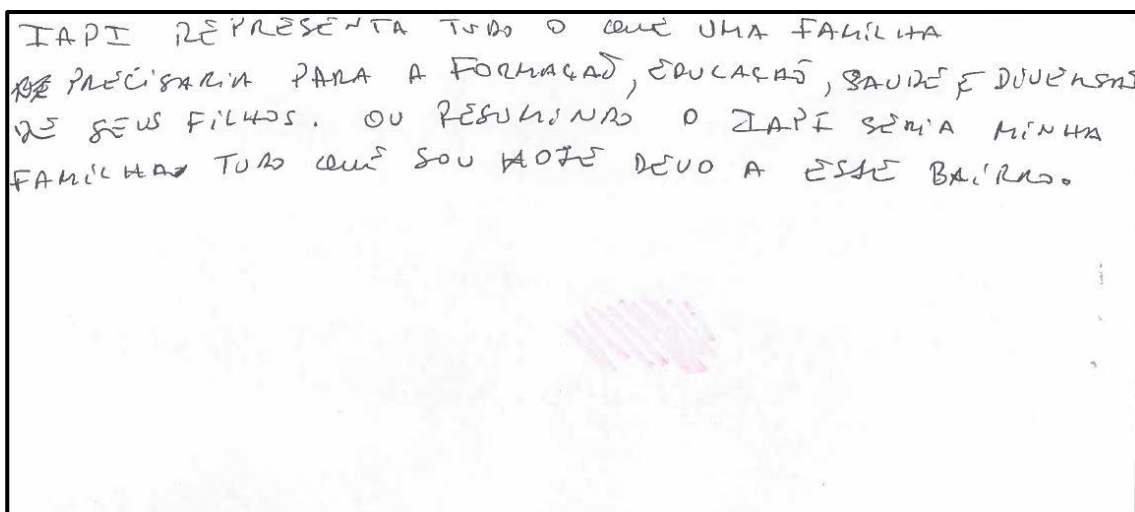 IAPI REPRESENTA TUDO O QUE UMA FAMÍLIA
PRECISARIA PARA A FORMAÇAÕ, EDUCAÇAÕ, SAUDE E DIVERSAS
DE SEUS FILHOS. OU RESUMINDO O IAPI SERIA MINHA
FAMÍLHA TUDO QUE SOU HOJE DEVO A ESSE BAIRRO.